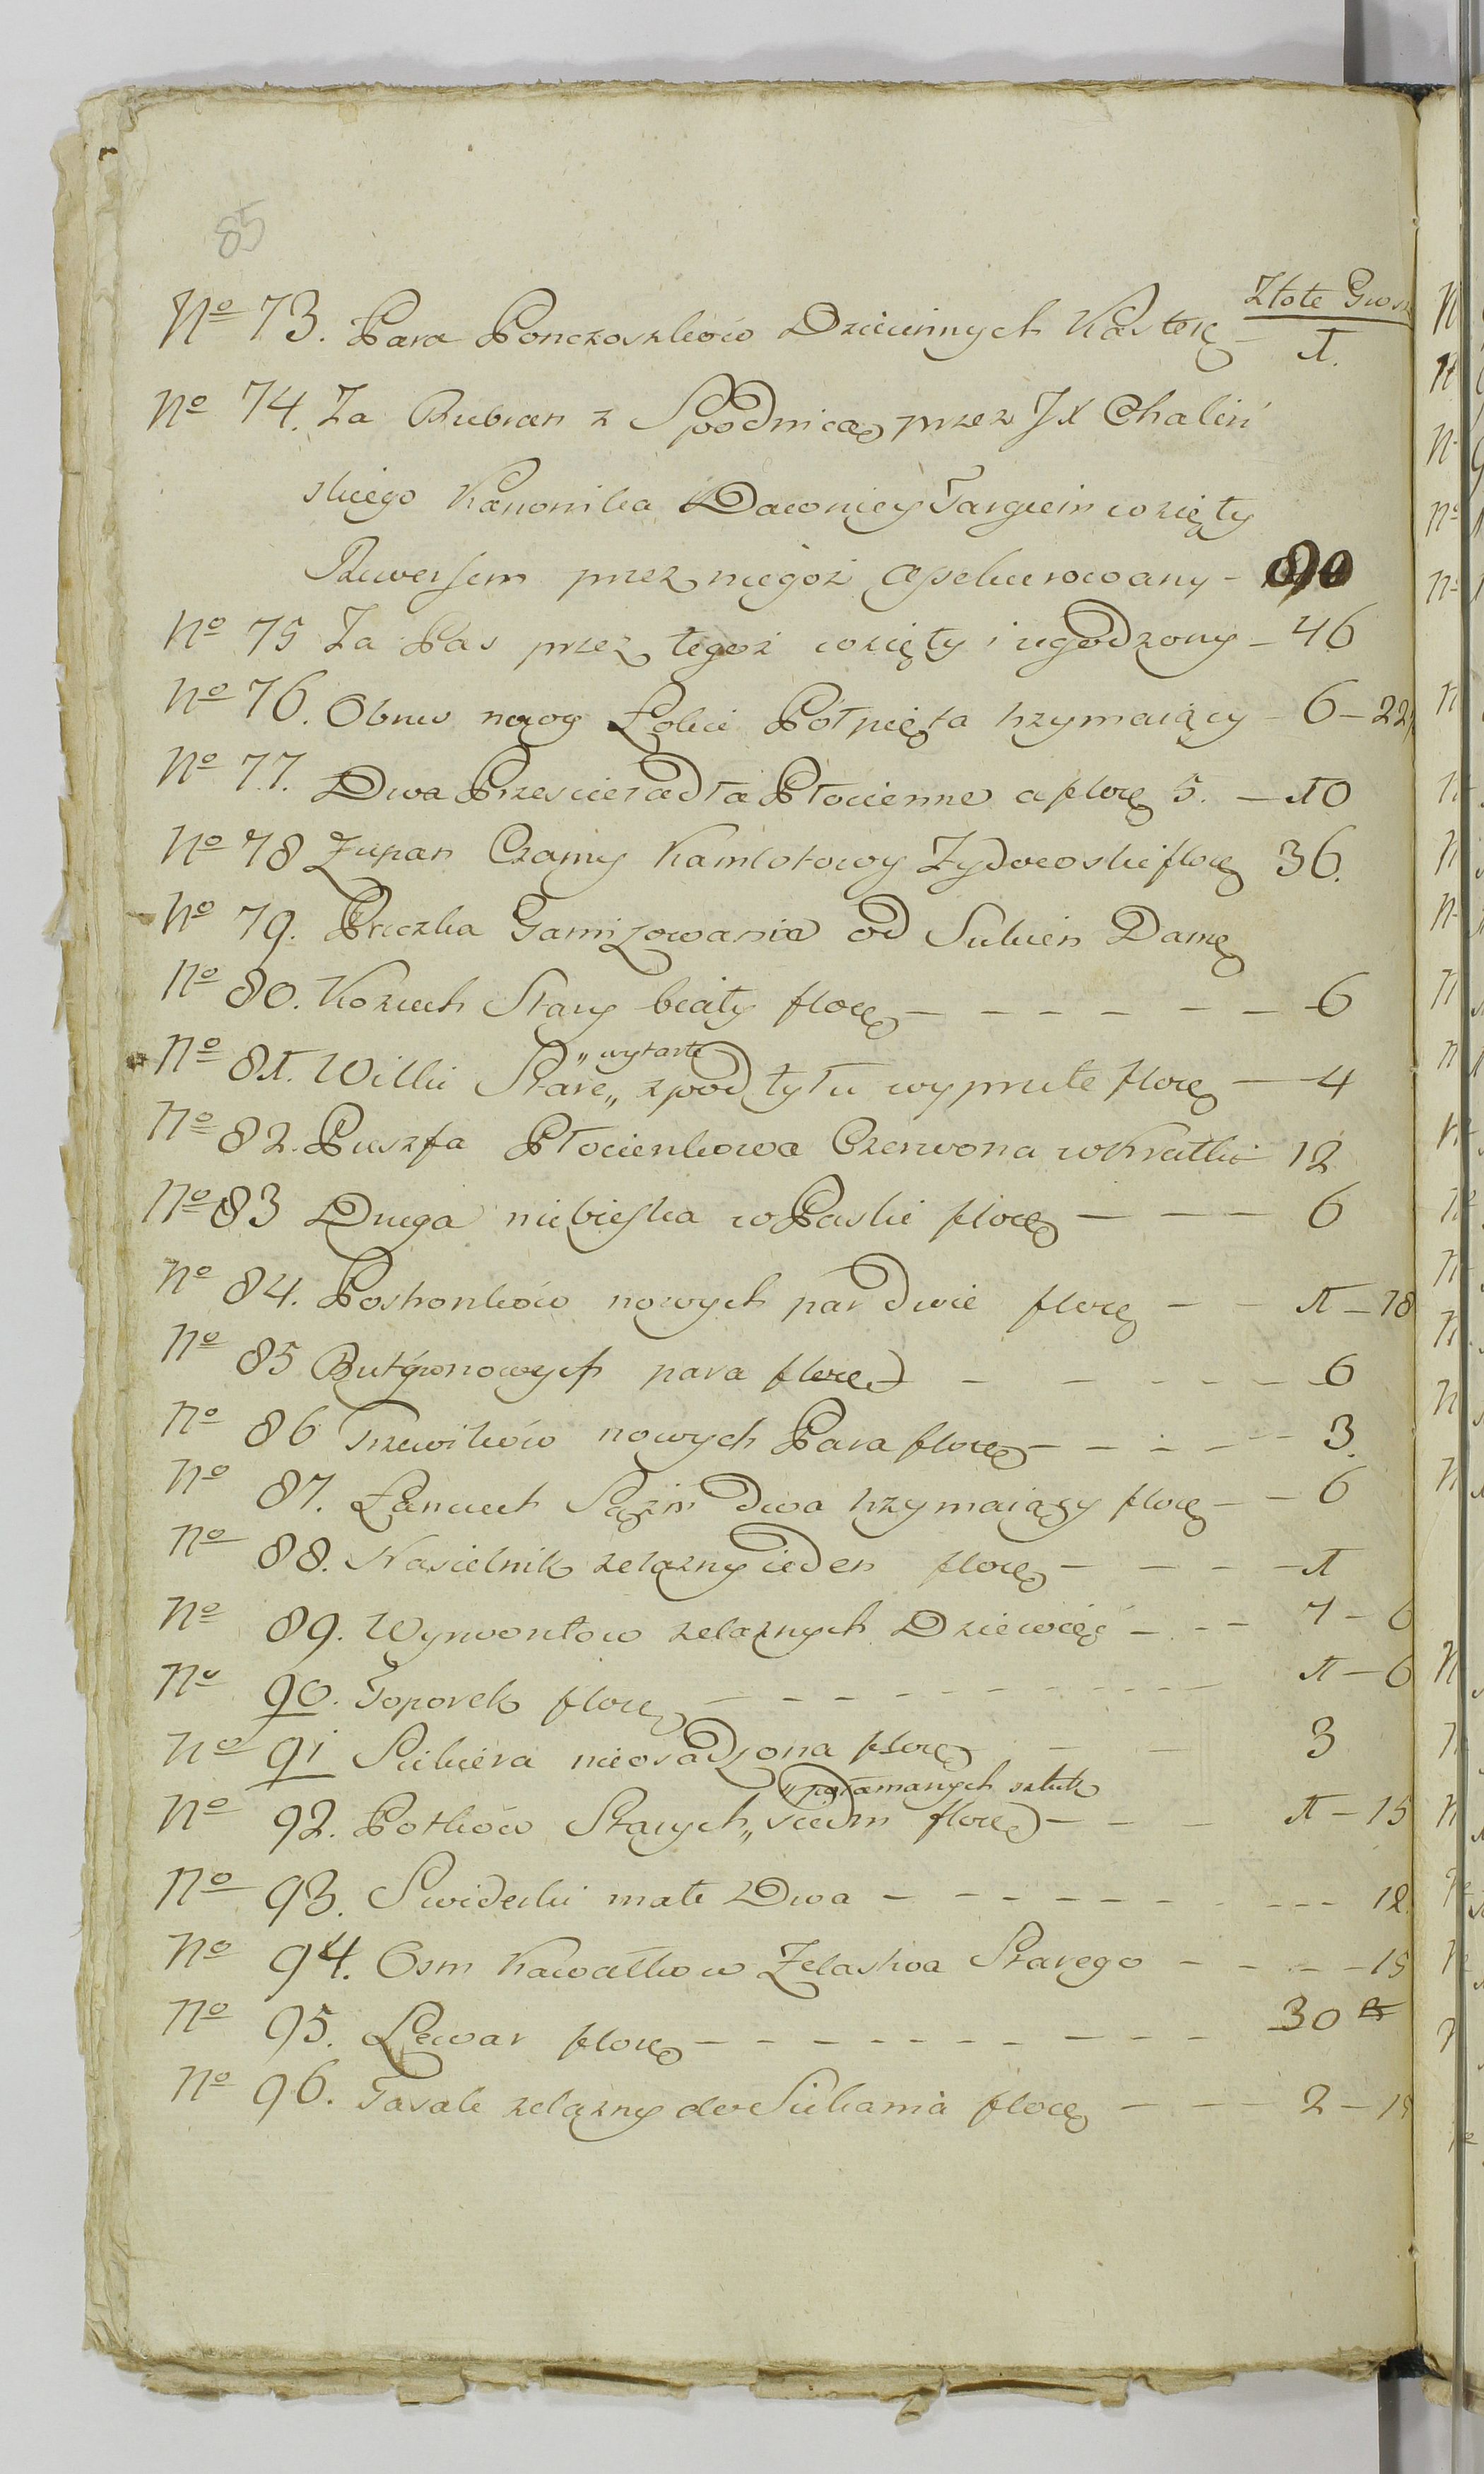 85
Złote Gros
No 73. Para Ponczoszków Dziecinnych Kastor – 1.
No 74. Za Kubran z Spodnicą przez JX Chaliń
skiego Kanonika Dawniey Targiem wzięty
Rewersem przez niegoż assekurowany – 90
No 75 Za Pas przez tegoż wzięty i ugodzony – 46
No 76. Obrus nowy Łokci Półpięta trzymaiący – 6 – 22
No 77. Dwa Przescieradła Płocienne a flore 5. – 10
No 78 Żupan Czarny Kamlotowy Żydowski flore 36.
No 79. Paczka Garnizowania od Sukien Dame
No 80. Kożuch Stary biały flore – – – – – – 6
No 81. Wilki Stare „ zpod tyłu wyprute flore – 4
„ wytarte
No 82. Puszfa Płocienkowa Czerwona w Kratki 12
No 83 Druga niebieska w Paski flore – – – 6
No 84. Postronków nowych par dwie flore – – 1 – 18
No 85 Butów nowych para flore – – – – – – 6
No 86 Trzewików nowych Para flore – – – – – 3.
No 87. Łancuch Sążń dwa trzymaiący flore – – 6
No 88. Nasielnik zelazny ieden flore – – – – 1
No 89. Wyrwontow zelaznych Dziewięć – – – 7 – 6
No 90. Toporek flore – – – – – – – – – – 1 – 6
No 91 Siekiera nieosadzona flore – – 3
„ połamanych sztuk
No 92. Potków Starych „ siedm flore – – – 1 – 15
No 93. Swiderki małe Dwa – – – – – – – – – – 12
No 94. Osm Kawałkow Zelastwa Starego – – – – 15
No 95. Lewar flore – – – – – – – – – – 30
No 96. Tasak zelazny do Siekania flore – – – 2 – 15